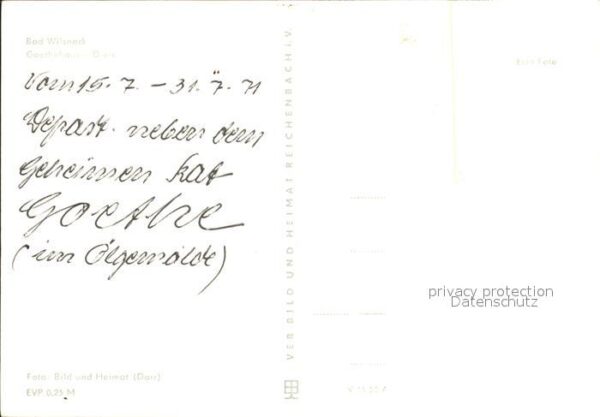 Bad Wilsnack
Goethehaus Diele
Vom 15. 7. – 31. 7. 71
Depart. neben dem
Geheimen Rat
Goethe
(im Ölgemälde)
Foto: Bild und Heimat (Darr)
EVP 0,25 M
VEB BILD UND HEIMAT REICHENBACH i. V.
Echt Foto
privacy protection
Datenschutz